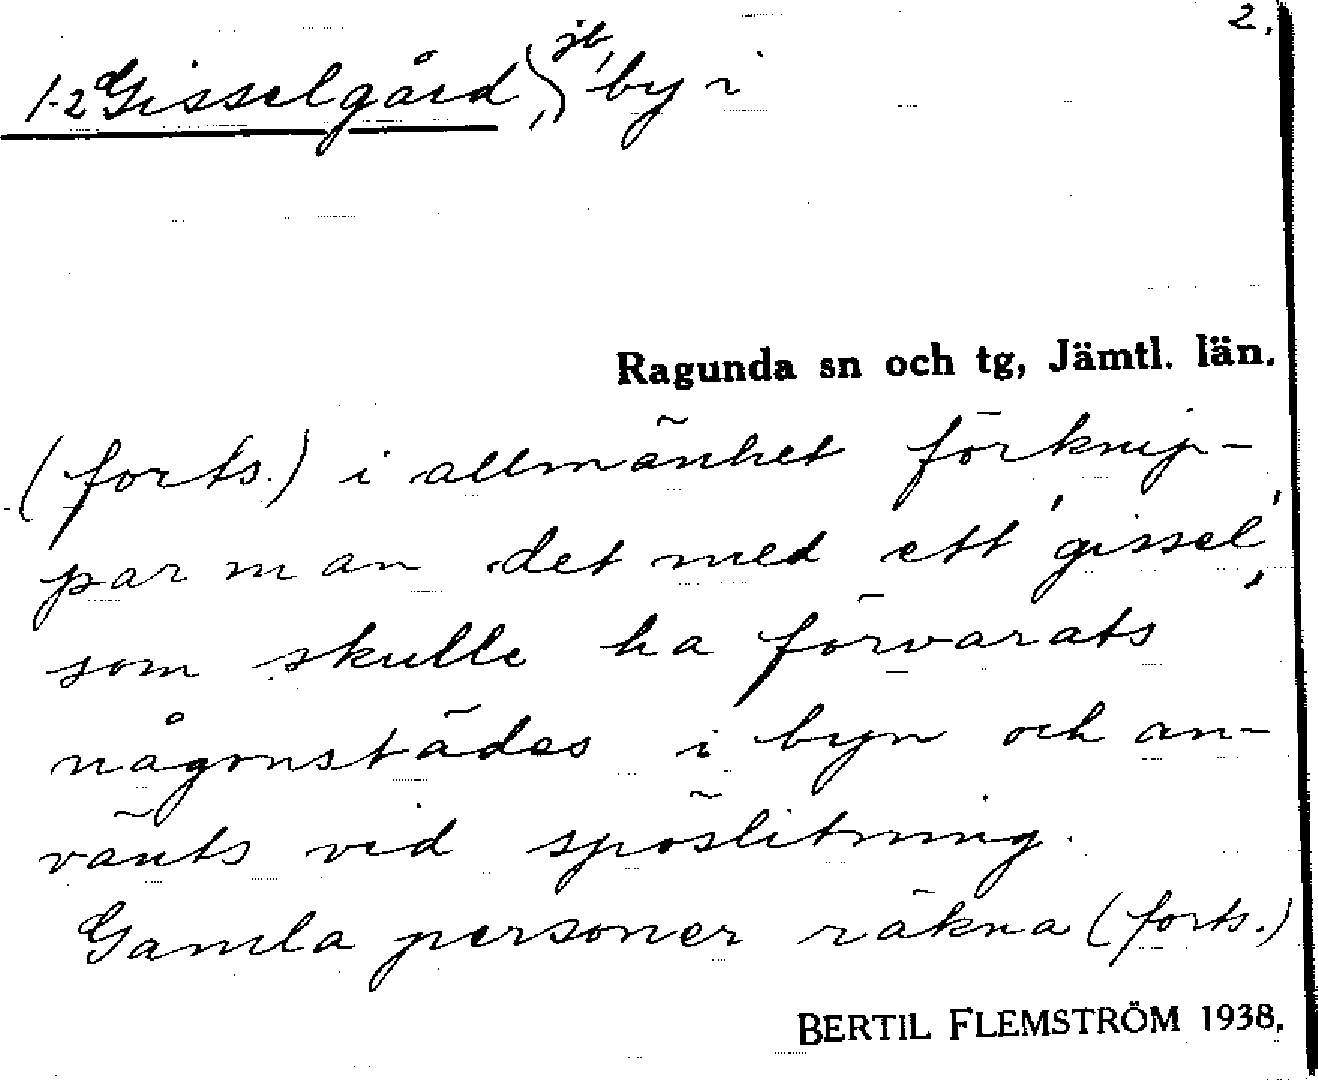 2.
1-2 Gisselgård, jb, by i
Ragunda sn och tg, Jämtl. län.
(forts.) i allmänhet förknip-
par man det med ett 'gissel',
som skulle ha förvarats
någonstädes i byn och an-
vänts vid spöslitning.
Gamla personer räkna (forts.)
BERTIL FLEMSTRÖM 1938.